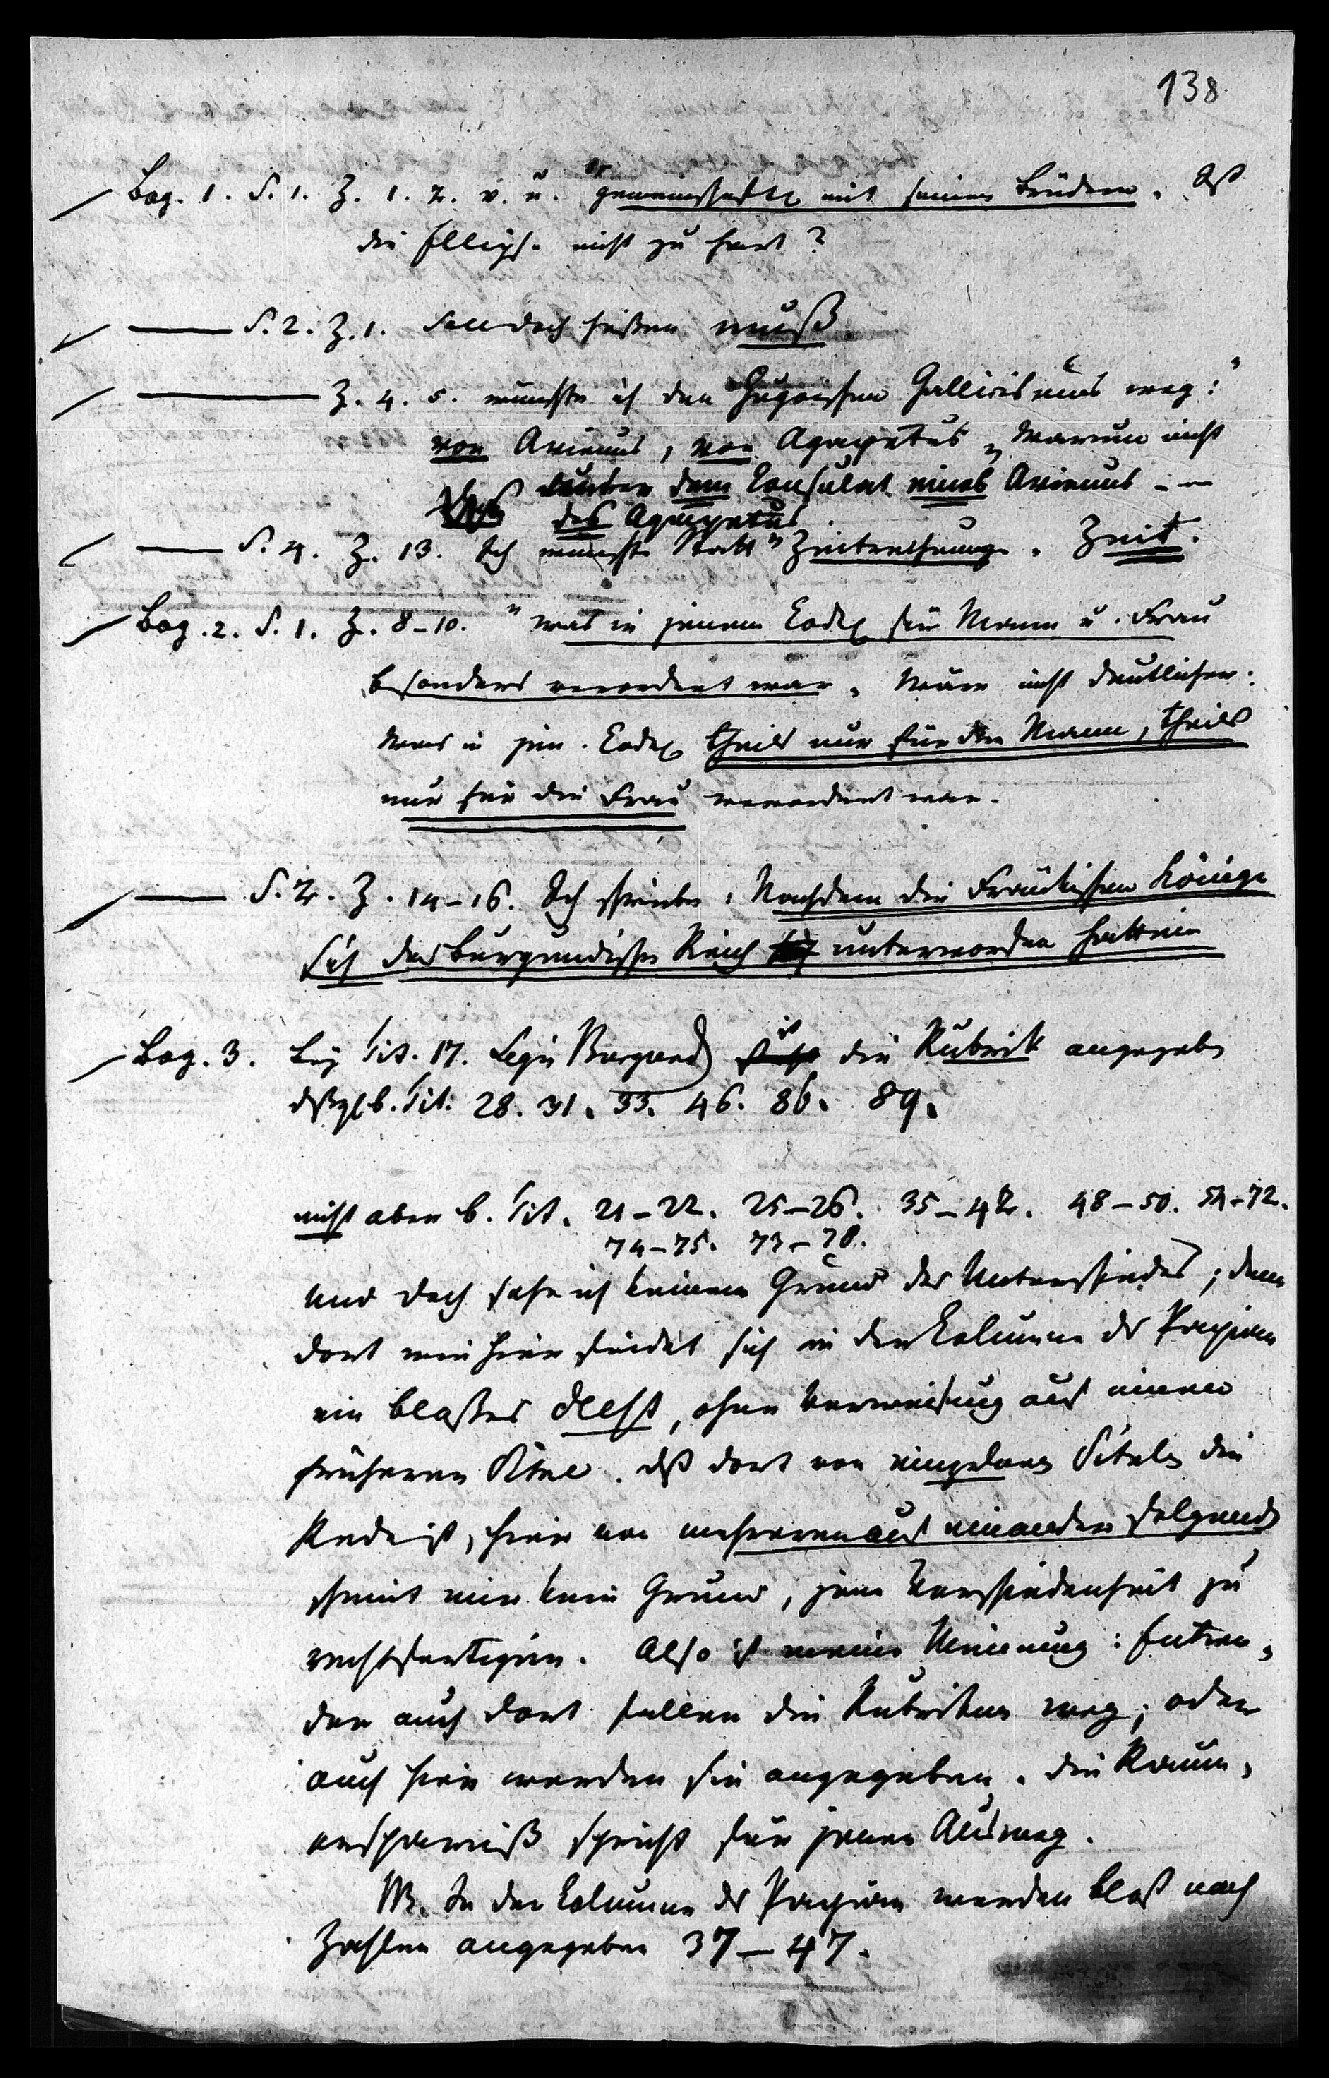 138
Bog. 1. S. 1. Z. 1. 2. v. u. "gemeinschaftl mit seinen Brüdern„ Ist
die Ellips. nicht zu hart?
—— S. 2. Z. 1. soll doch heißen muß
—— Z. 4. 5. wünschte ich den Gallicismus weg: "
von Avienus, von Agapetus„ Warum nicht
unter dem Consulat eines Avienus - -
des Agapetus.
—— S. 4. Z. 13. Ich wünschte statt "Zeitrechnung„ Zeit.
Bog. 2. S. 1. Z. 8-10. "was in jenem Codex für Mann u. Frau
besonders verordnet war„ Wäre nicht deutlicher:
Was in jen. Codex theils nur für den Mann, theils
nur für die Frau verordnet war.
—— S. 2. Z. 14-16. Ich schriebe: Nachdem die Fränkischen Könige
sich das Burgundische Reich unterworfen hatten
Bog. 3. Bey Tit. 17. Legis Burgund ist die Rubrik angegeben
dßglb. Tit. 28. 31. 33. 46. 86. 89.
nicht aber b. Tit. 21-22. 25-26. 35-42. 48-50. 54-72.
74-75. 77-78.
Und doch sehe ich keinen Grund des Unterschiedes; denn
dort wie hier findet sich in der Columne des Papian
ein bloßes deest, ohne Verweisung auf einen
früheren Titel. dß dort von einzelnen Titeln die
Rede ist, hier von mehreren auf einander folgenden
scheint mir kein Grund, jene Verschiedenheit zu
rechtfertigen. Also ist meine Meinung: Entwe-
der auch dort fallen die Rubriken weg; oder
auch hier werden sie angegeben. die Raum-
ersparniß spricht für jenen Ausweg.
NB. In der Columne des Papian werden bloß nach
Zahlen angegeben 37-47.